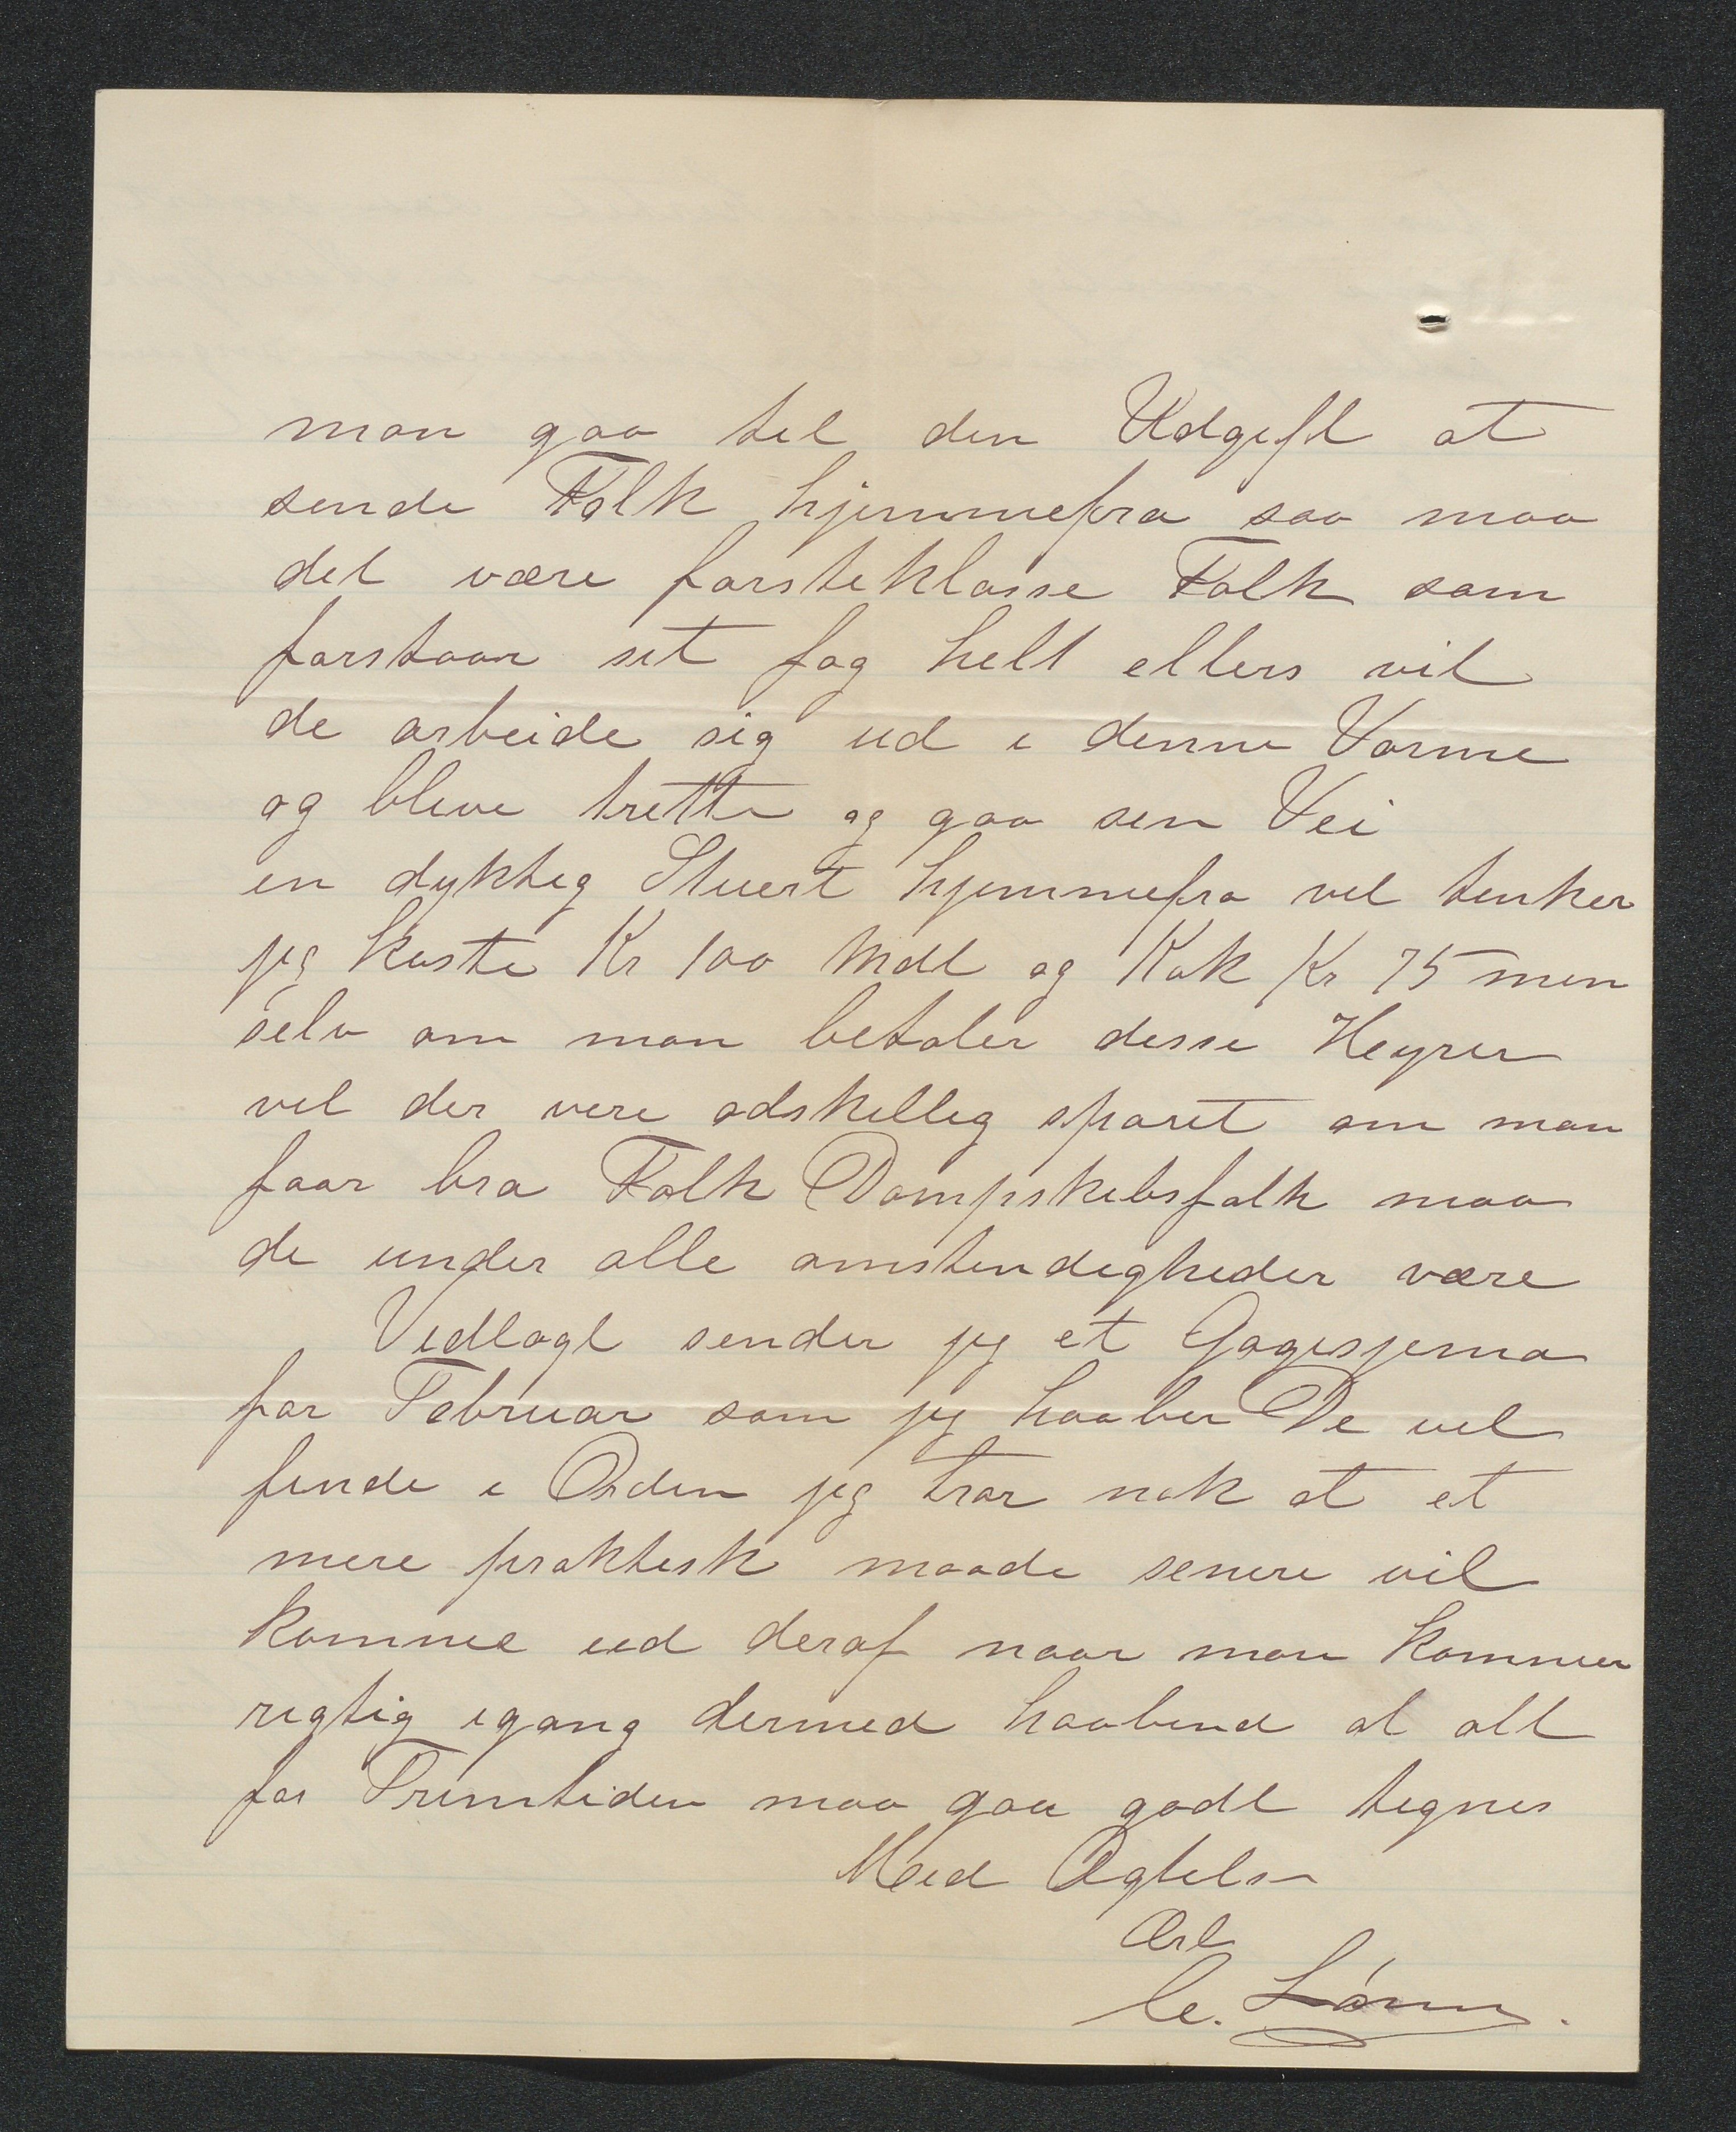 man gaa til den Udgift at
sende Folk hjemmefra saa maa
det være førsteklasse Folk som
forstaar sit fag helt ellers vil
de arbeide sig ud i denne Varme
og blive trette og gaa sin Vei
en dyktig Stuert hjemmefra vil tenker
jeg koste Kr 100 Mdl og Kok Kr 75 men
selv om man betaler disse Heyrer
vil der vere adskellig sparet om man
faar bra Folk Dampskibsfolk maa
de under alle omstendigheder være
Vedlagt sender jeg et Gagesjema
for Februar som jeg haaber De vil
finde i Orden jeg tror nok at et
mere praktisk maade senere vil
komme ud deraf naar man kommer
rigtig igang dermed haabend at alt
for Fremtiden maa gaa godt tegnes
Med Agtelse
Ærb
C. Lønn.